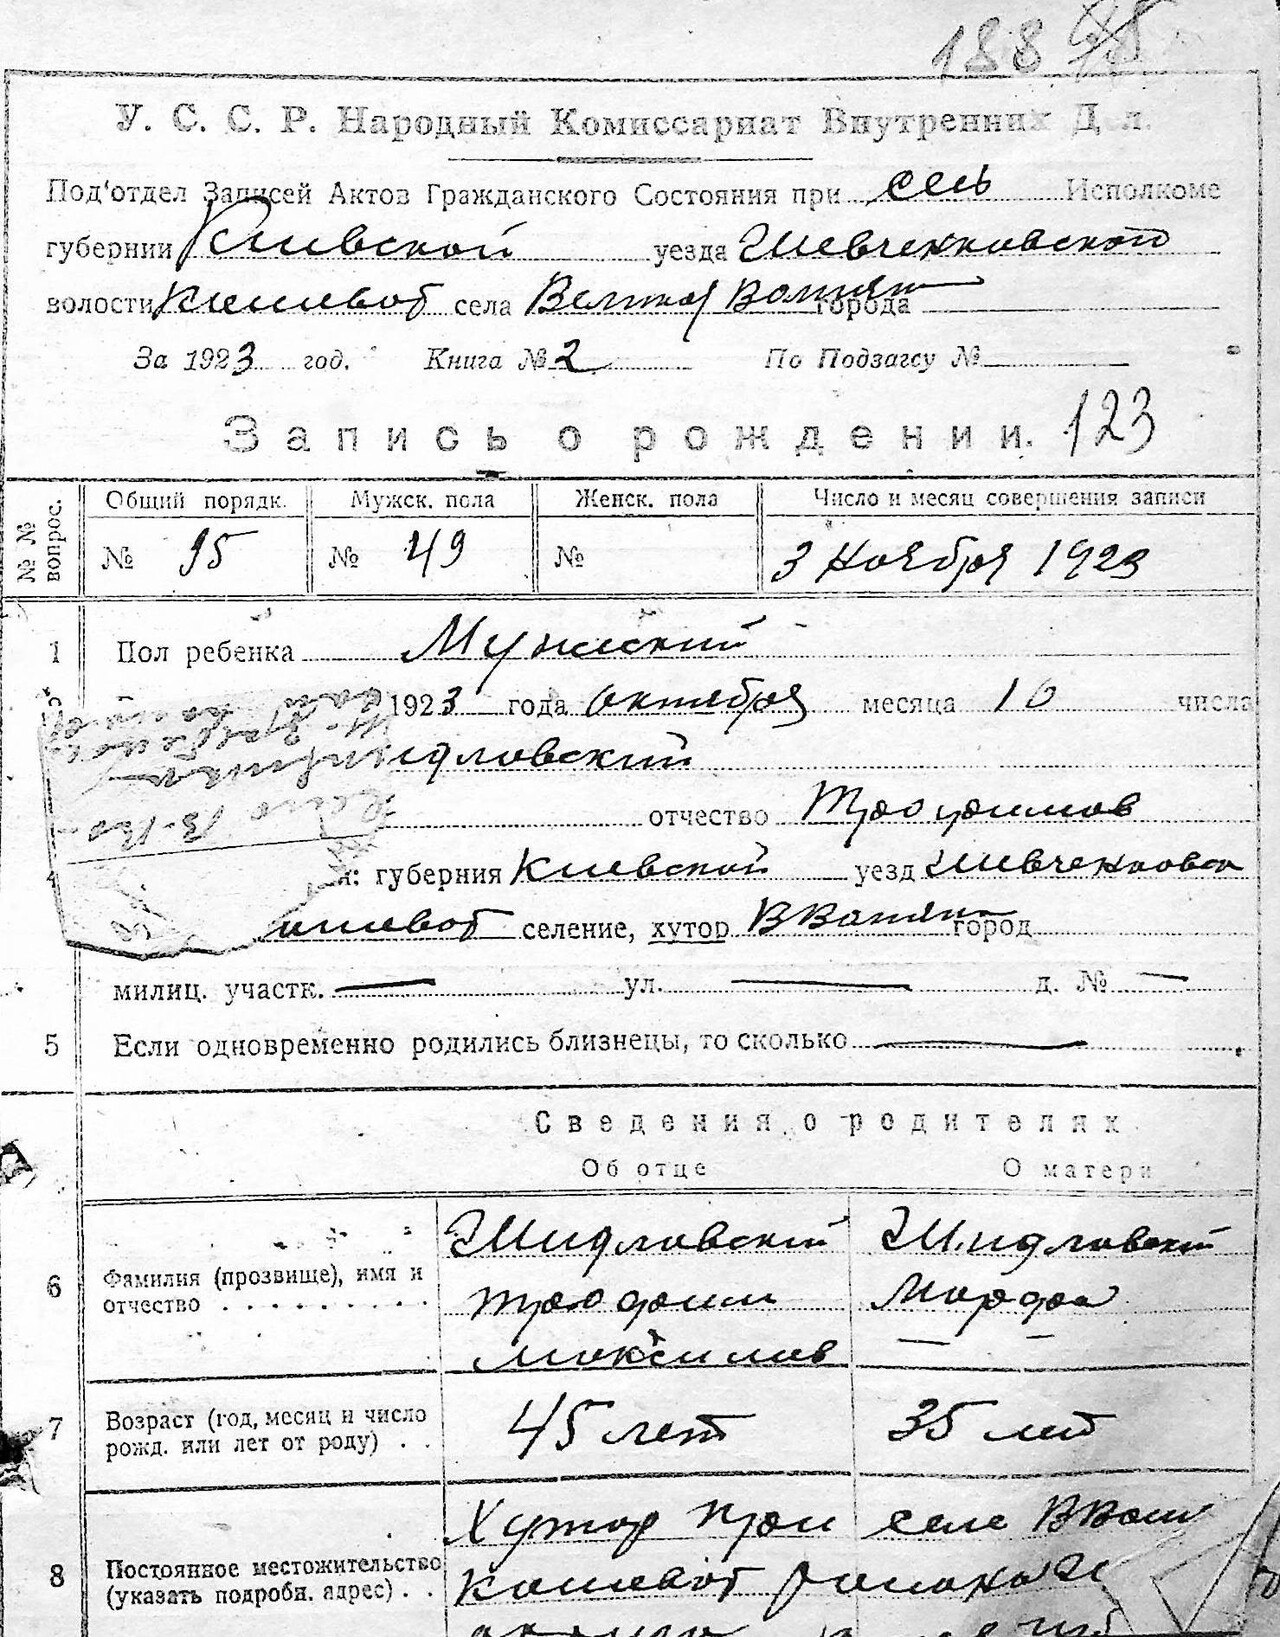 188
У. С. С. Р. Народный Комиссариат Внутренних Д л.
Под'отдел Записей Актов Гражданского Состояния при сель Исполкоме
губернии Киевской уезда Шевченковской
волости села города
За 1923 год. Книга № 2 По Подзагсу №
Запись о рождении. 123
№ № вопрос. Общий порядк. Мужск. пола Женск. пола Число и месяц совершения записи
№ 95 № 49 № 3 Ноября 1923
1 Пол ребенка Мужский
1923 года октября месяца 10 числа
идловский
отчество Трофимов
я: губерния Киевской уезд Шевченковско
селение, хутор город
милиц. участк. — ул. — д. № —
5 Если одновременно родились близнецы, то сколько —
Сведения о родителях
Об отце О матери
Шидловский Шидловский
6 Фамилия (прозвище), имя и
отчество . . . . . . . . . Трофим Марфа
Максимов — —
7 Возраст (год, месяц и число
рожд. или лет от роду) . . 45 лет 35 лет
Хутор при селе
8 Постоянное местожительство
(указать подробн. адрес) . .